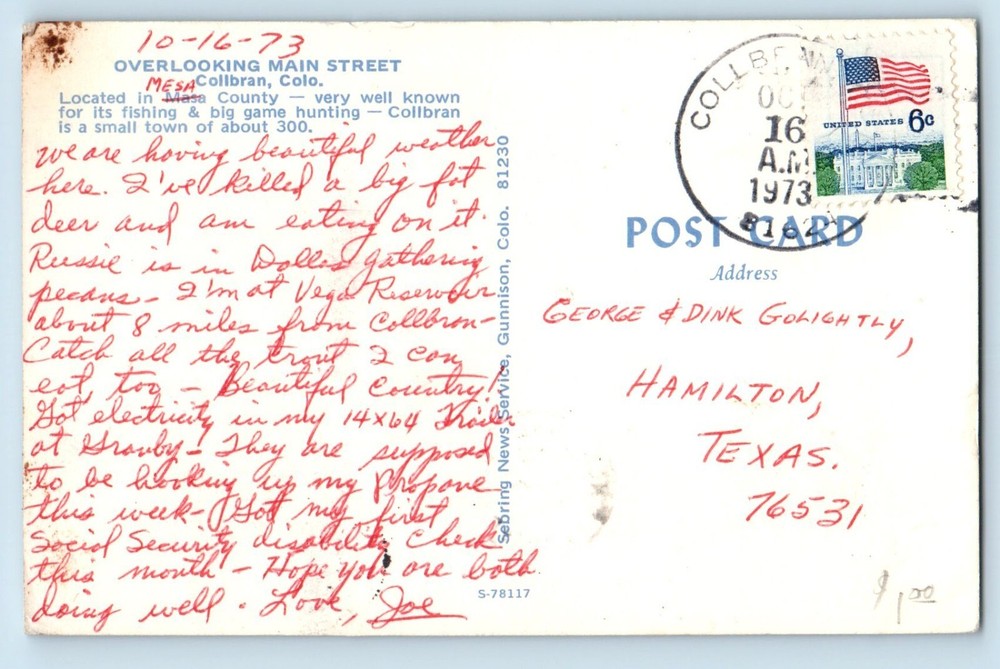 10-16-73
OVERLOOKING MAIN STREET
MESA
Collbran, Colo.
Located in Masa County — very well known
for its fishing & big game hunting — Collbran
is a small town of about 300.
We are having beautiful weather
here. I've killed a big fat
deer and am eating on it.
Russie is in Dallas gathering
pecans - I'm at Vega Reservoir
about 8 miles from Collbran-
Catch all the trout I can
eat, too - Beautiful country!
Got electricity in my 14x64 Trailer
at Granby - They are supposed
to be hooking up my Propane
this week - Got my first
Social Security disability check
this month - Hope you are both
doing well. Love, Joe
Sebring News Service, Gunnison, Colo. 81230
S-78117
COLLBRAN
OCT
16
A.M.
1973
81624
UNITED STATES 6c
POST CARD
Address
GEORGE & DINK GOLIGHTLY,
HAMILTON,
TEXAS.
76531
$1.00